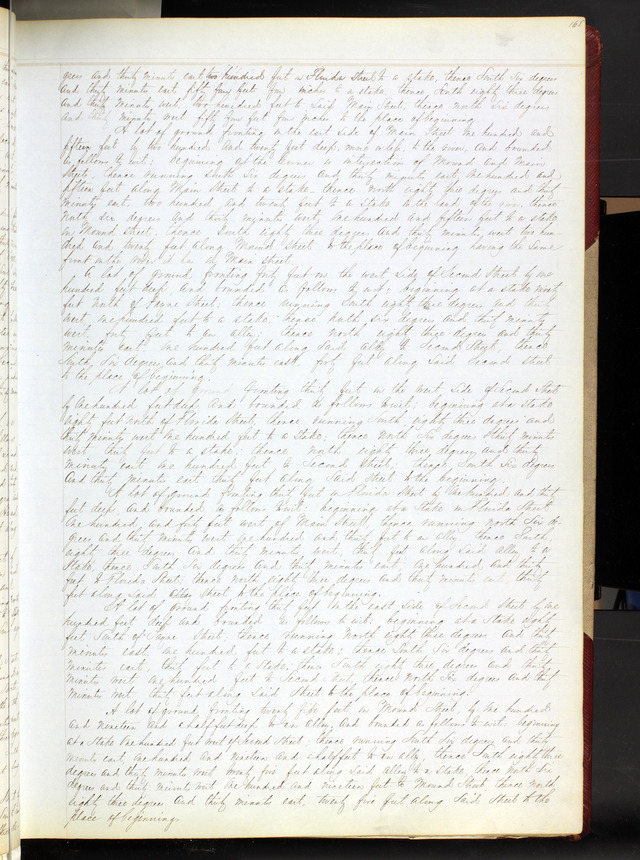 161
grees and thirty minutes east two hundred feet on Florida Street to a stake, thence South Six degrees
and thirty minutes east fifty four feet four inches to a stake, thence South eighty three degrees
and thirty minutes west two hundred feet to Said Main Street, thence north Six degrees
and thirty minutes west fifty four feet four inches to the place of beginning.
A lot of ground fronting on the east side of Main Street one hundred and
fifteen feet by two hundred and twenty feet deep, more or less, to the and bounded
as follows to wit: beginning at the corner or intersection of Mound and Main
Streets, thence running South Six degrees and thirty minutes east, one hundred and
fifteen feet along Main Street to a stake, thence North eighty three degrees and thirty
minutes east, two hundred and twenty feet to a stake thence
North six degrees and thirty minutes west, one hundred and fifteen feet to a stake
on Mound Street, thence South eighty three degrees and thirty minutes west two hun-
dred and twenty feet along Mound Street to the place of beginning having the same
front on the as on Main Street.
A lot of ground, fronting forty feet on the west side of Second Street by one
hundred feet deep and bounded as follows to wit: beginning at a stake
feet north of Street, thence running South eighty three degrees and thirty
west, one hundred feet to a stake, thence north six degrees and thirty minutes
west forty feet to an alley, thence north eighty three degrees and thirty
minutes east, one hundred feet along said alley to Second Street, thence
South Six degrees and thirty minutes east forty feet along Said Second Street
to the place of beginning.
A lot of ground fronting thirty feet on the west side of Second Street
by one hundred feet deep and bounded as follows to wit: beginning at a stake
eighty feet north of Florida Street, thence running South, eighty three degrees and
thirty minutes west one hundred feet to a stake; thence North Six degrees & thirty minutes
west, thirty feet to a stake; thence north eighty three degrees and thirty
minutes east one hundred feet to Second Street, thence South Six degrees
and thirty minutes east thirty feet along Said Street to the beginning.
A lot of ground fronting thirty feet on Florida Street by one hundred and thirty
feet deep and bounded as follows to wit: beginning at a stake on Florida Street
one hundred and forty feet west of Main Street, thence running north Six de-
grees and thirty minutes west one hundred and thirty feet to an alley, thence South
eighty three degrees and thirty minutes west, thirty feet along Said alley to a
stake, thence South Six degrees and thirty minutes east, one hundred and thirty
feet to Florida Street, thence north eighty three degrees and thirty minutes east, thirty
feet along said Street to the place of beginning.
A lot of ground fronting thirty feet on the east side of Second Street by one
hundred feet deep and bounded as follows to wit: beginning at a stake eighty
feet South of Street; thence running North eighty three degrees and thirty
minutes east one hundred feet to a stake; thence South Six degrees and thirty
minutes east, thirty feet to a stake, thence South eighty three degrees and thirty
minutes west one hundred feet to Second Street, thence North Six degrees and thirty
minutes west, thirty feet along Said Street to the place of beginning.
A lot of ground fronting twenty five feet on Mound Street, by one hundred
and nineteen and a half feet deep to an alley and bounded as follows to wit: beginning
at a stake one hundred feet west of Second Street, thence running South Six degrees and thirty
minutes east, one hundred and nineteen and a half feet to an alley, thence South eighty three
degrees and thirty minutes west, twenty five feet along Said alley to a stake, thence North Six
degrees and thirty minutes west one hundred and nineteen feet to Mound Street thence north
eighty three degrees and thirty minutes east, twenty five feet along Said Street to the
place of beginning.